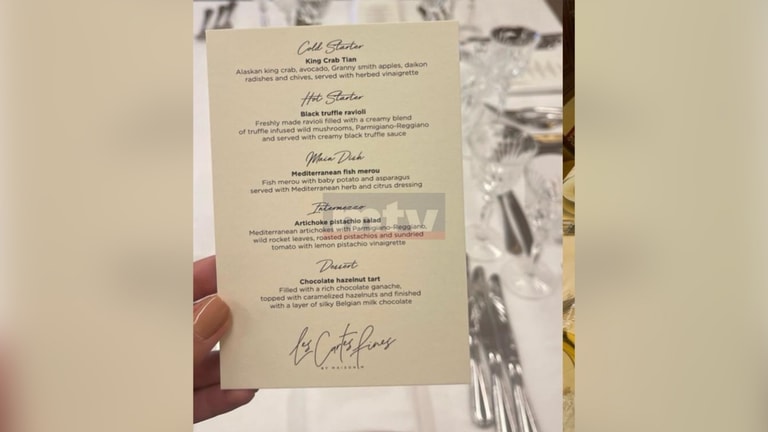 Cold Starter
King Crab Tian
Alaskan king crab, avocado, Granny smith apples, daikon
radishes and chives, served with herbed vinaigrette
Hot Starter
Black truffle ravioli
Freshly made ravioli filled with a creamy blend
of truffle infused wild mushrooms, Parmigiano-Reggiano
and served with creamy black truffle sauce
Main Dish
Mediterranean fish merou
Fish merou with baby potato and asparagus
served with Mediterranean herb and citrus dressing
Intermezzo
mtv
Artichoke pistachio salad
Mediterranean artichokes with Parmigiano-Reggiano,
wild rocket leaves, roasted pistachios and sundried
tomato with lemon pistachio vinaigrette
Dessert
Chocolate hazelnut tart
Filled with a rich chocolate ganache,
topped with caramelized hazelnuts and finished
with a layer of silky Belgian milk chocolate
Les Cartes Fines
BY MAISON M